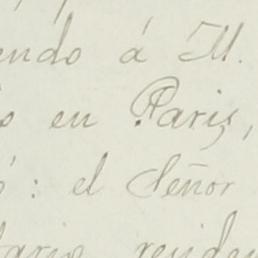 endo á M.
s en Paris,
: el Señor
tario residen